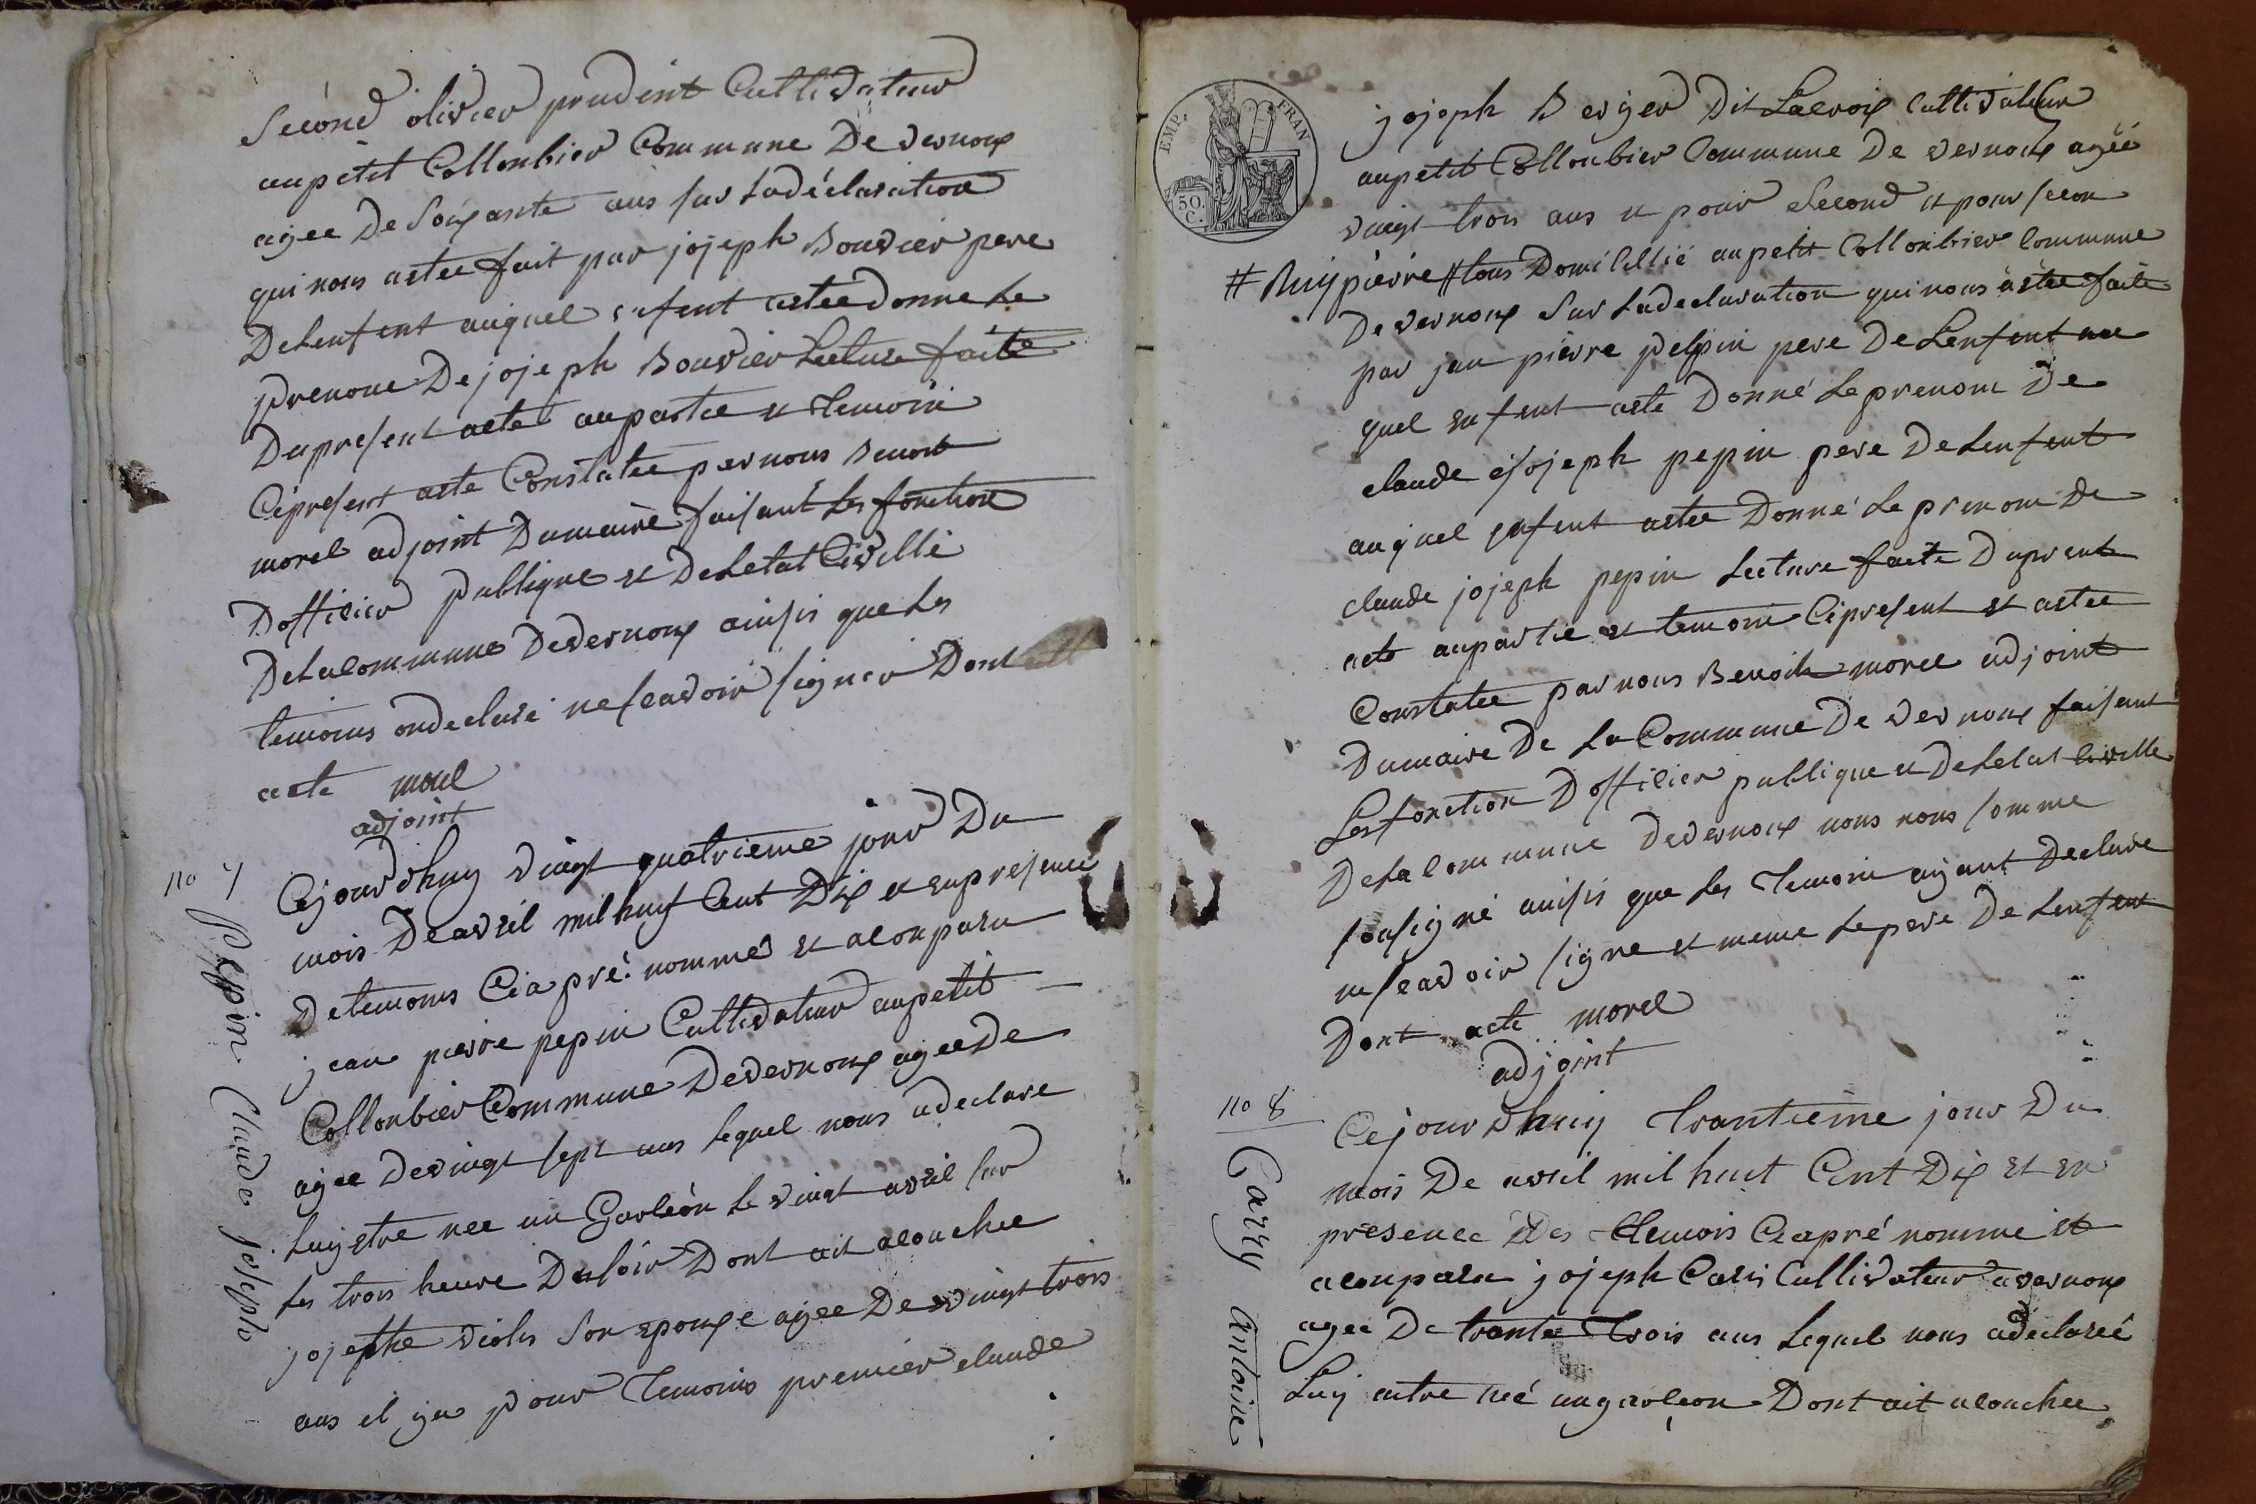 Second olivier prudent Cultivateur
aupetit Collonbier Commune De vernoux
agee De Soixante ans sur Ladéclaration
qui nous astee fait par jojeph Bouvier pere
DeLenfent auquel enfent astee donne Le
prenone De jojeph Bouvier Lecture faite
Dupresent acte aupartee et Temoin
Cépresent acte Constatee par nous Benoit
morel adjoint Dumaire faisant Les fonction
Dofficier publique et DeLetat Civille
DeLacommune Devernoux ainsis que Les
temoins ondeclaré ne seavoir signer Dont
acte morel
adjoint
no 7
Pepin Claude Joseph
Cejourdhuy vingt quatrieme jour Du
mois Deavril mil huit Cent Dix et enpresence
Detemoins Ciapré nommé et aconparu
jean pierre pepin Cultivateur aupetit
Collonbier Commune Devernoux ageeDe
agee Devingt sept ans Lequel nous adeclare
Luy etre nee un Garléon Le vingt avril sur
Les trois heure Dusoir Dont ait acouchee
jojephe violes Son epouxe agee De vingt trois
ans il ya pour Temoins premier claude
EMP. FRAN
50.
C.
jojeph Berger Dit Lacroix Cultivateur
aupetit Collonbier Commune De vernoux ageé
vingt trois ans et pour Second et pour secon
# Ruy pierre # tous Domicillié aupetit Collonbier Commune
De vernoux Sur Ladeclaration qui nous astee faite
par jan pierre pepin pere DeLenfent au
quel enfent aste Donné Leprenom De
claude jojeph pepin pere DeLenfent
auquel enfent astee Donné Le prenom De
claude jojeph pepin Lecture faite Duprent
acte aupartie et temoin Cipresent et astee
Constatee par nous Benoit morel adjoint
Dumaire De La Commune De vernoux faisent
Les fonction Dofficier publique et DeLetat Civille
DeLa Commune Devernoux nous nous somme
sousigné ainsis que Les Temoin ayant Declare
ne seavoir signe et meme Lepere De Lenfent
Dont acte morel
adjoint
no 8
Carry antoine
Cejourdhuiy Trantieme jour Du
mois De avril mil huit Cent Dix et en
presence Des Temois Ciapré nomme et
aconparu jojeph Caris Cultivateur avernoux
agee De trante Trois ans Lequel nous adeclareé
Luy aitre neé ungarleon Dont ait acouchee